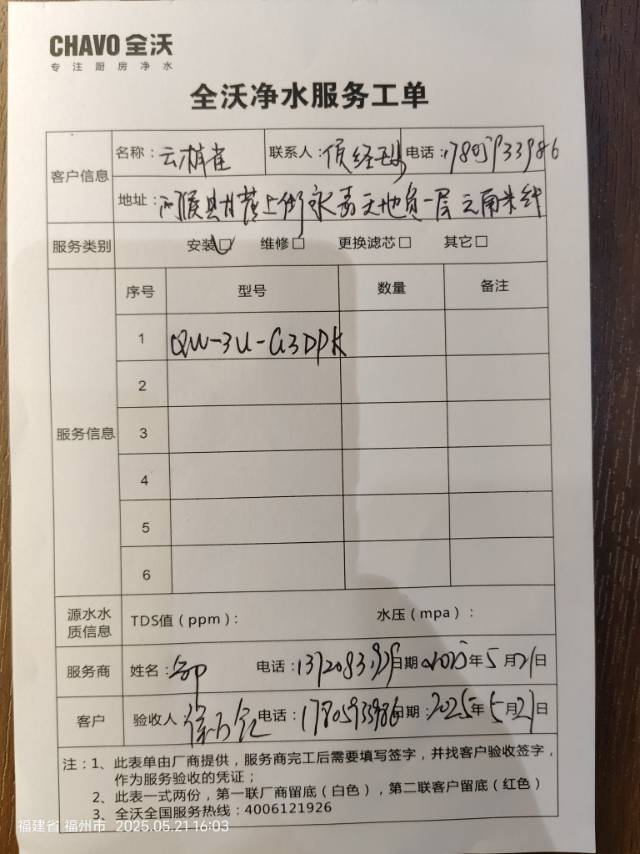 CHAVO 全沃
专注厨房净水
全沃净水服务工单
客户信息 名称：云楠雀 联系人： 电话：17805933986
地址：闽侯县甘蔗上街永嘉天地负一层云南米线
服务类别 安装☑ 维修□ 更换滤芯□ 其它□
序号 型号 数量 备注
1 QW-3U-G3DPK
2
服务信息 3
4
5
6
源水水质信息 TDS值（ppm）： 水压（mpa）：
服务商 姓名： 电话： 日期 2025年5月21日
客户 验收人 电话：17805933986 日期：2025年5月21日
注：1、此表单由厂商提供，服务商完工后需要填写签字，并找客户验收签字，
作为服务验收的凭证；
2、此表一式两份，第一联厂商留底（白色），第二联客户留底（红色）
3、全沃全国服务热线：4006121926
福建省 福州市 2025.05.21 16:03